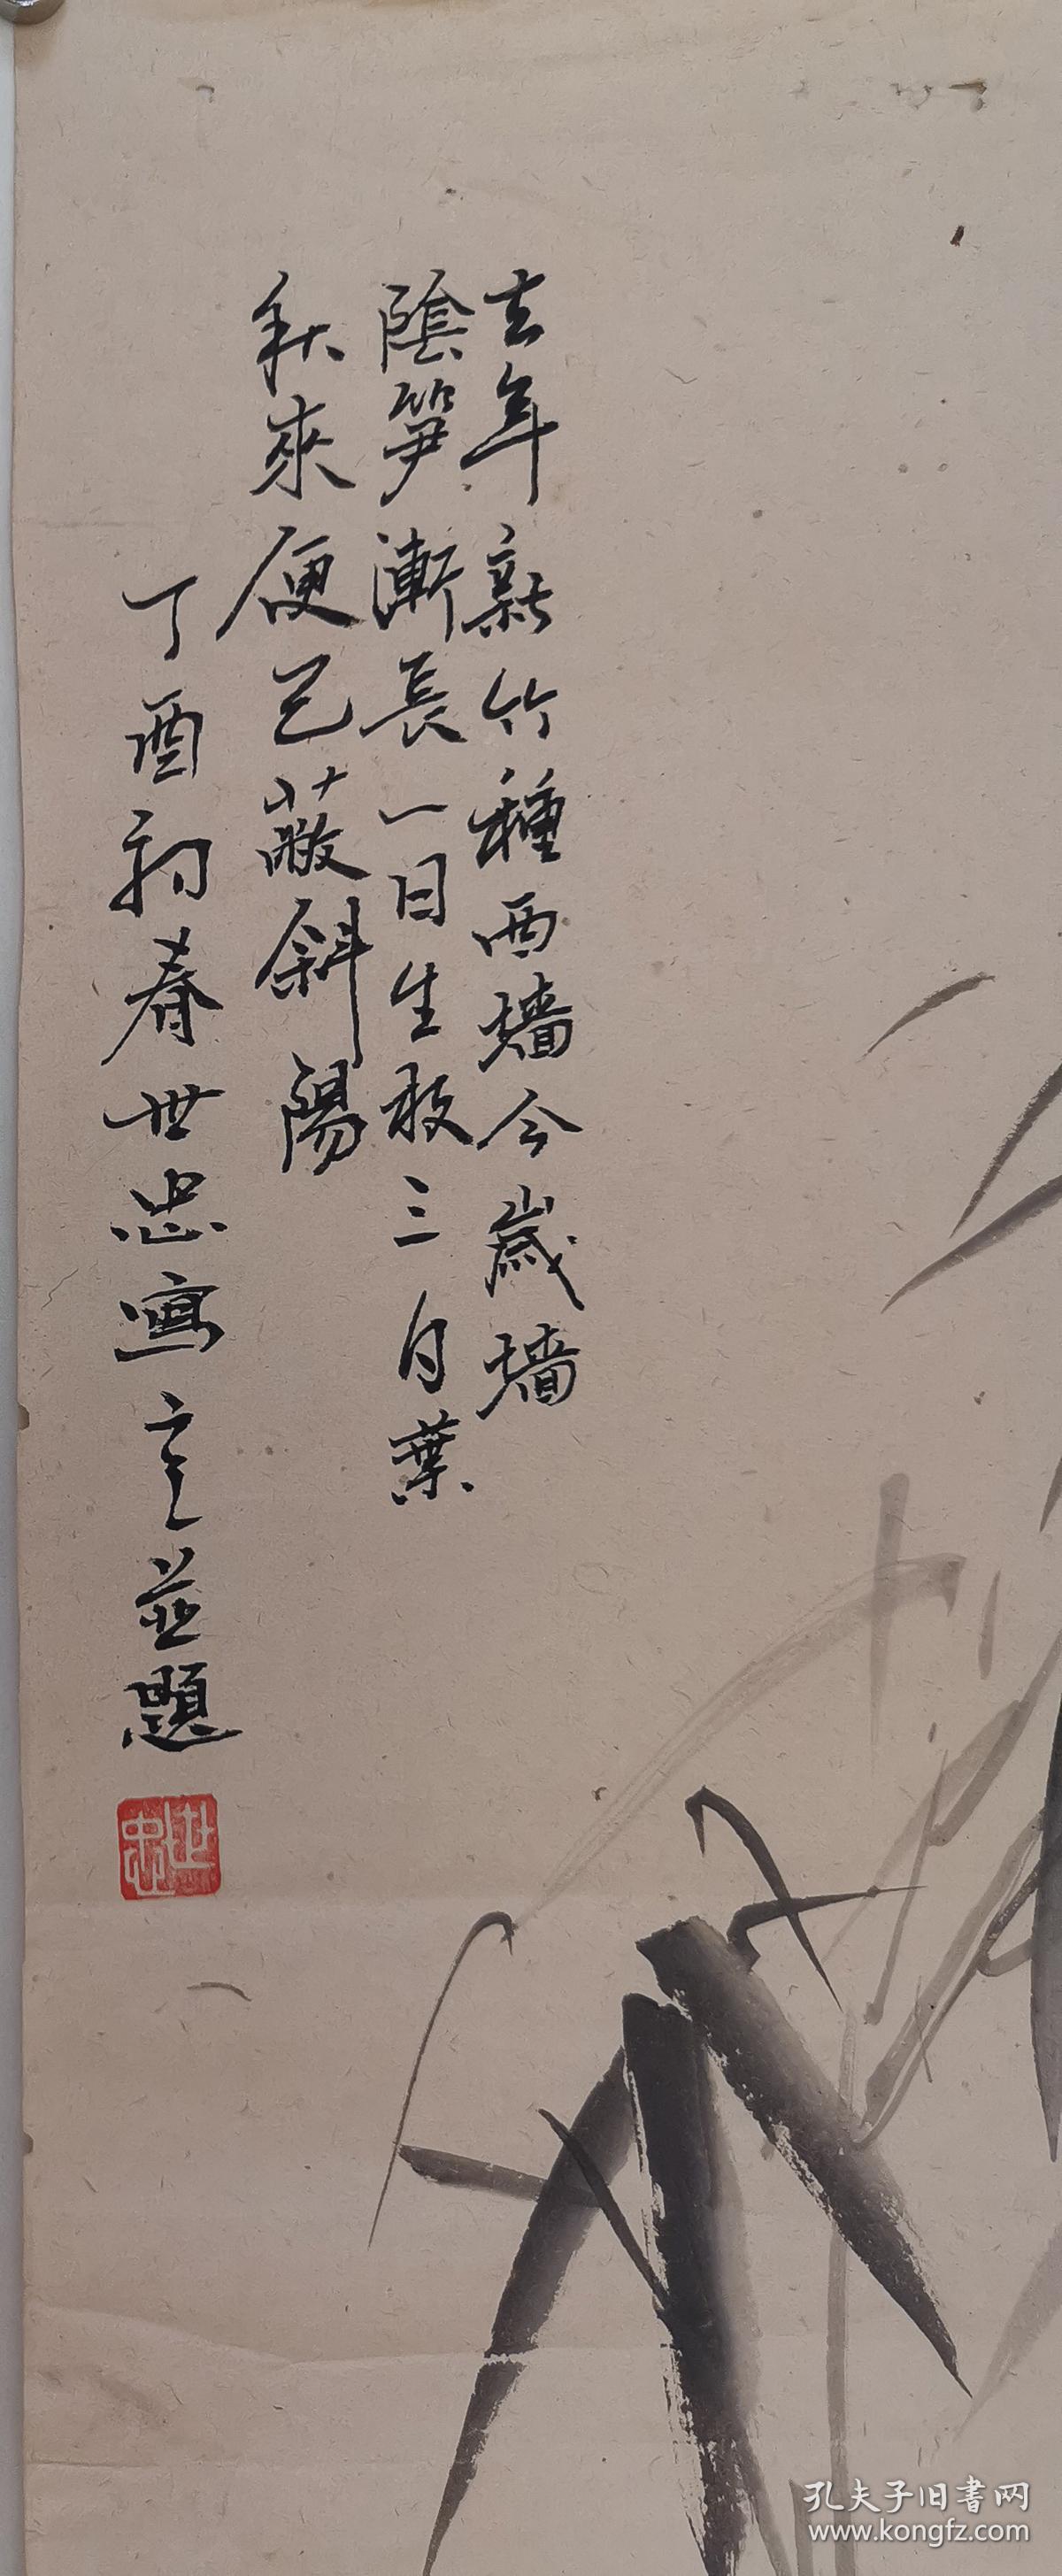 去年新竹種西墻今歲墻
陰笋漸長一日生枝三日葉
秋來便已蔽斜陽
丁酉初春世忠寫意並題
世忠
孔夫子旧書网
www.kongfz.com